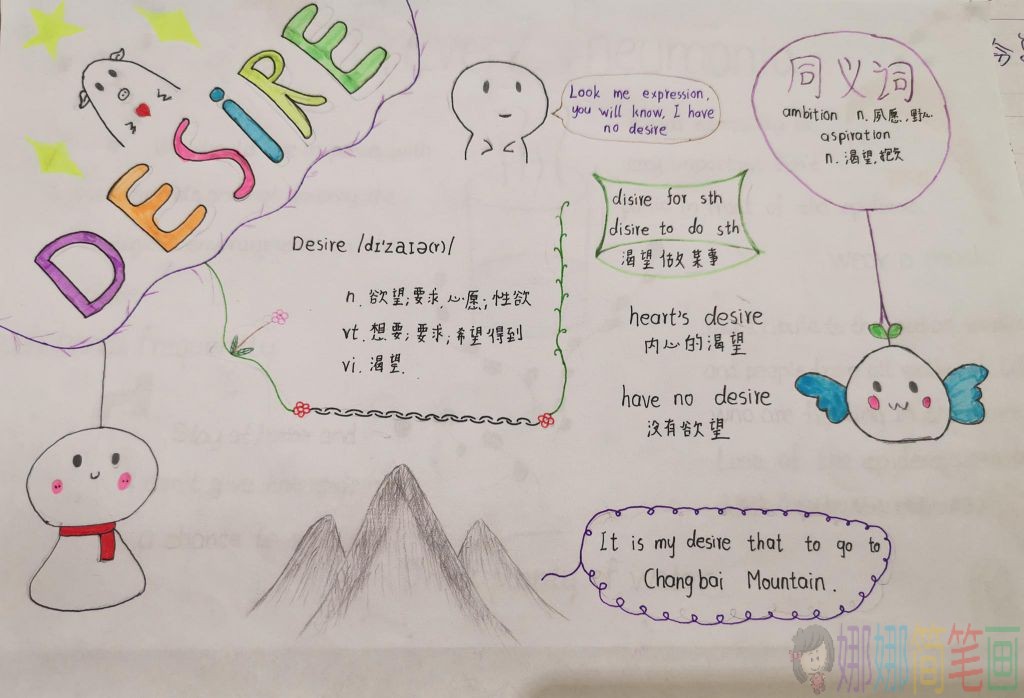 DESIRE
Look me expression,
you will know, I have
no desire
同义词
ambition n. 夙愿,野心
aspiration
n. 渴望,抱负
disire for sth
disire to do sth
渴望做某事
Desire /dɪ'zaɪə(r)/
n. 欲望;要求,心愿;性欲
vt. 想要;要求;希望得到
vi. 渴望.
heart's desire
内心的渴望
have no desire
没有欲望
It is my desire that to go to
Changbai Mountain.
娜娜简笔画